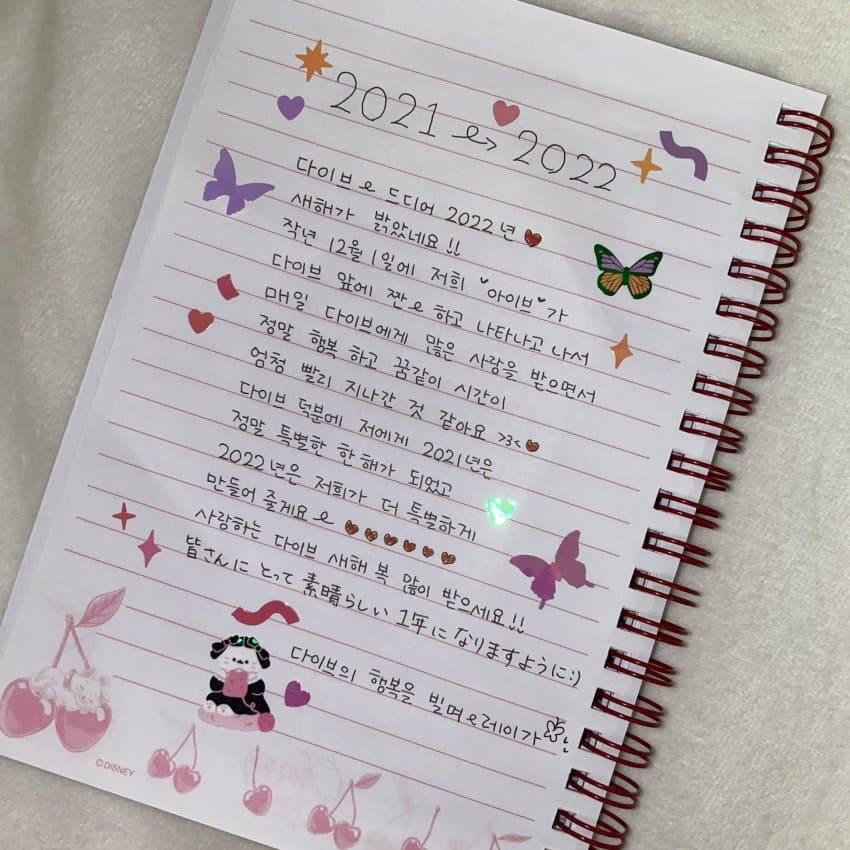 2021 → 2022
다이브~ 드디어 2022년♥
새해가 밝았네요!!
작년 12월 1일에 저희 "아이브"가
다이브 앞에 짠~ 하고 나타나고 나서
매일 다이브에게 많은 사랑을 받으면서
정말 행복 하고 꿈같이 시간이
엄청 빨리 지나간 것 같아요 >3<♥
다이브 덕분에 저에게 2021년은
정말 특별한 한 해가 되었고
2022년은 저희가 더 특별하게
만들어 줄게요~ ♥♥♥♥♥♥
사랑하는 다이브 새해 복 많이 받으세요!!
皆さんにとって素晴らしい1年になりますように:)
다이브의 행복을 빌며~레이가
©DISNEY